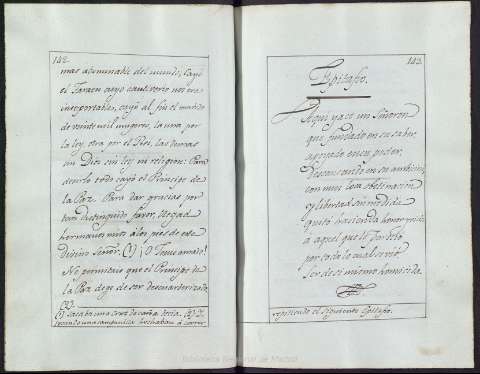 142.
mas acuminable del mundo; Cayó
el Tarazu cuyo cautiverio nos era
insoportable; cayó al fin el marido
de veinte mil mugeres, la una por
la ley, otra por el Rei, las demas
sin Dios sin ley ni religion: Para
decirlo todo cayó el Principe de
la Paz. Para dar gracias por
tan distinguido favor, llegad
hermanos mios a los pies de este
Divino Señor. (1) ¡O Jesus amado!
No permitais que el Principe de
la Paz dege de ser descuartizado.
(2)
(1) Sacaba una Cruz de caña, y decia. (2) Y
tocando una campanilla hechaban a correr
143.
Epitafio.
Aqui yace un Señoron
que fundado en su saber,
apoyado en su poder,
descansando en su ambicion,
con muy loca obstinacion
y libertad sin medida
quitó hacienda honor y vida
a aquel que le dio
por todo lo cual servió,
ser de si mismo homicida.
repitiendo el siguiente Epitafio.
Biblioteca Regional de Madrid